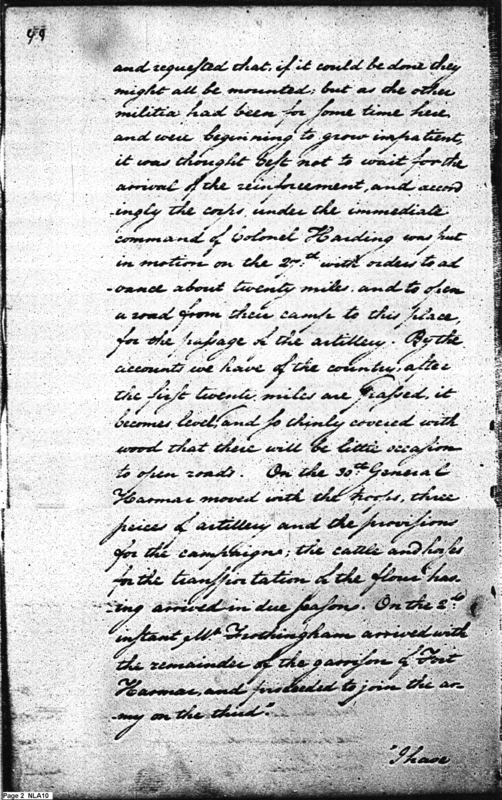 49
and requested that, if it could be done they
might all be mounted; but as the other
militia had been for some time here
and were beginning to grow impatient,
it was thought best not to wait for the
arrival of the reinforcement, and accord
-ingly the corps, under the immediate
command of Colonel Harding was put
in motion on the 27th with orders to ad
-vance about twenty miles, and to open
a road from their camp to this place,
for the passage of the artillery. By the
accounts we have of the country, after
the first twenty miles are passed, it
becomes level, and so thinly covered with
wood that there will be little occasion
to open roads. On the 30th General
Harmar moved with the troops, three
peices of artillery and the provisions
for the campaigne; the cattle and horses
for the transportation of the flour hav-
-ing arrived in due season. On the 2d
instant Mr Frothingham arrived with
the remainder of the garrison of Fort
Harmar, and proceeded to join the ar-
-my on the third"
"I have
Page 2 NLA10